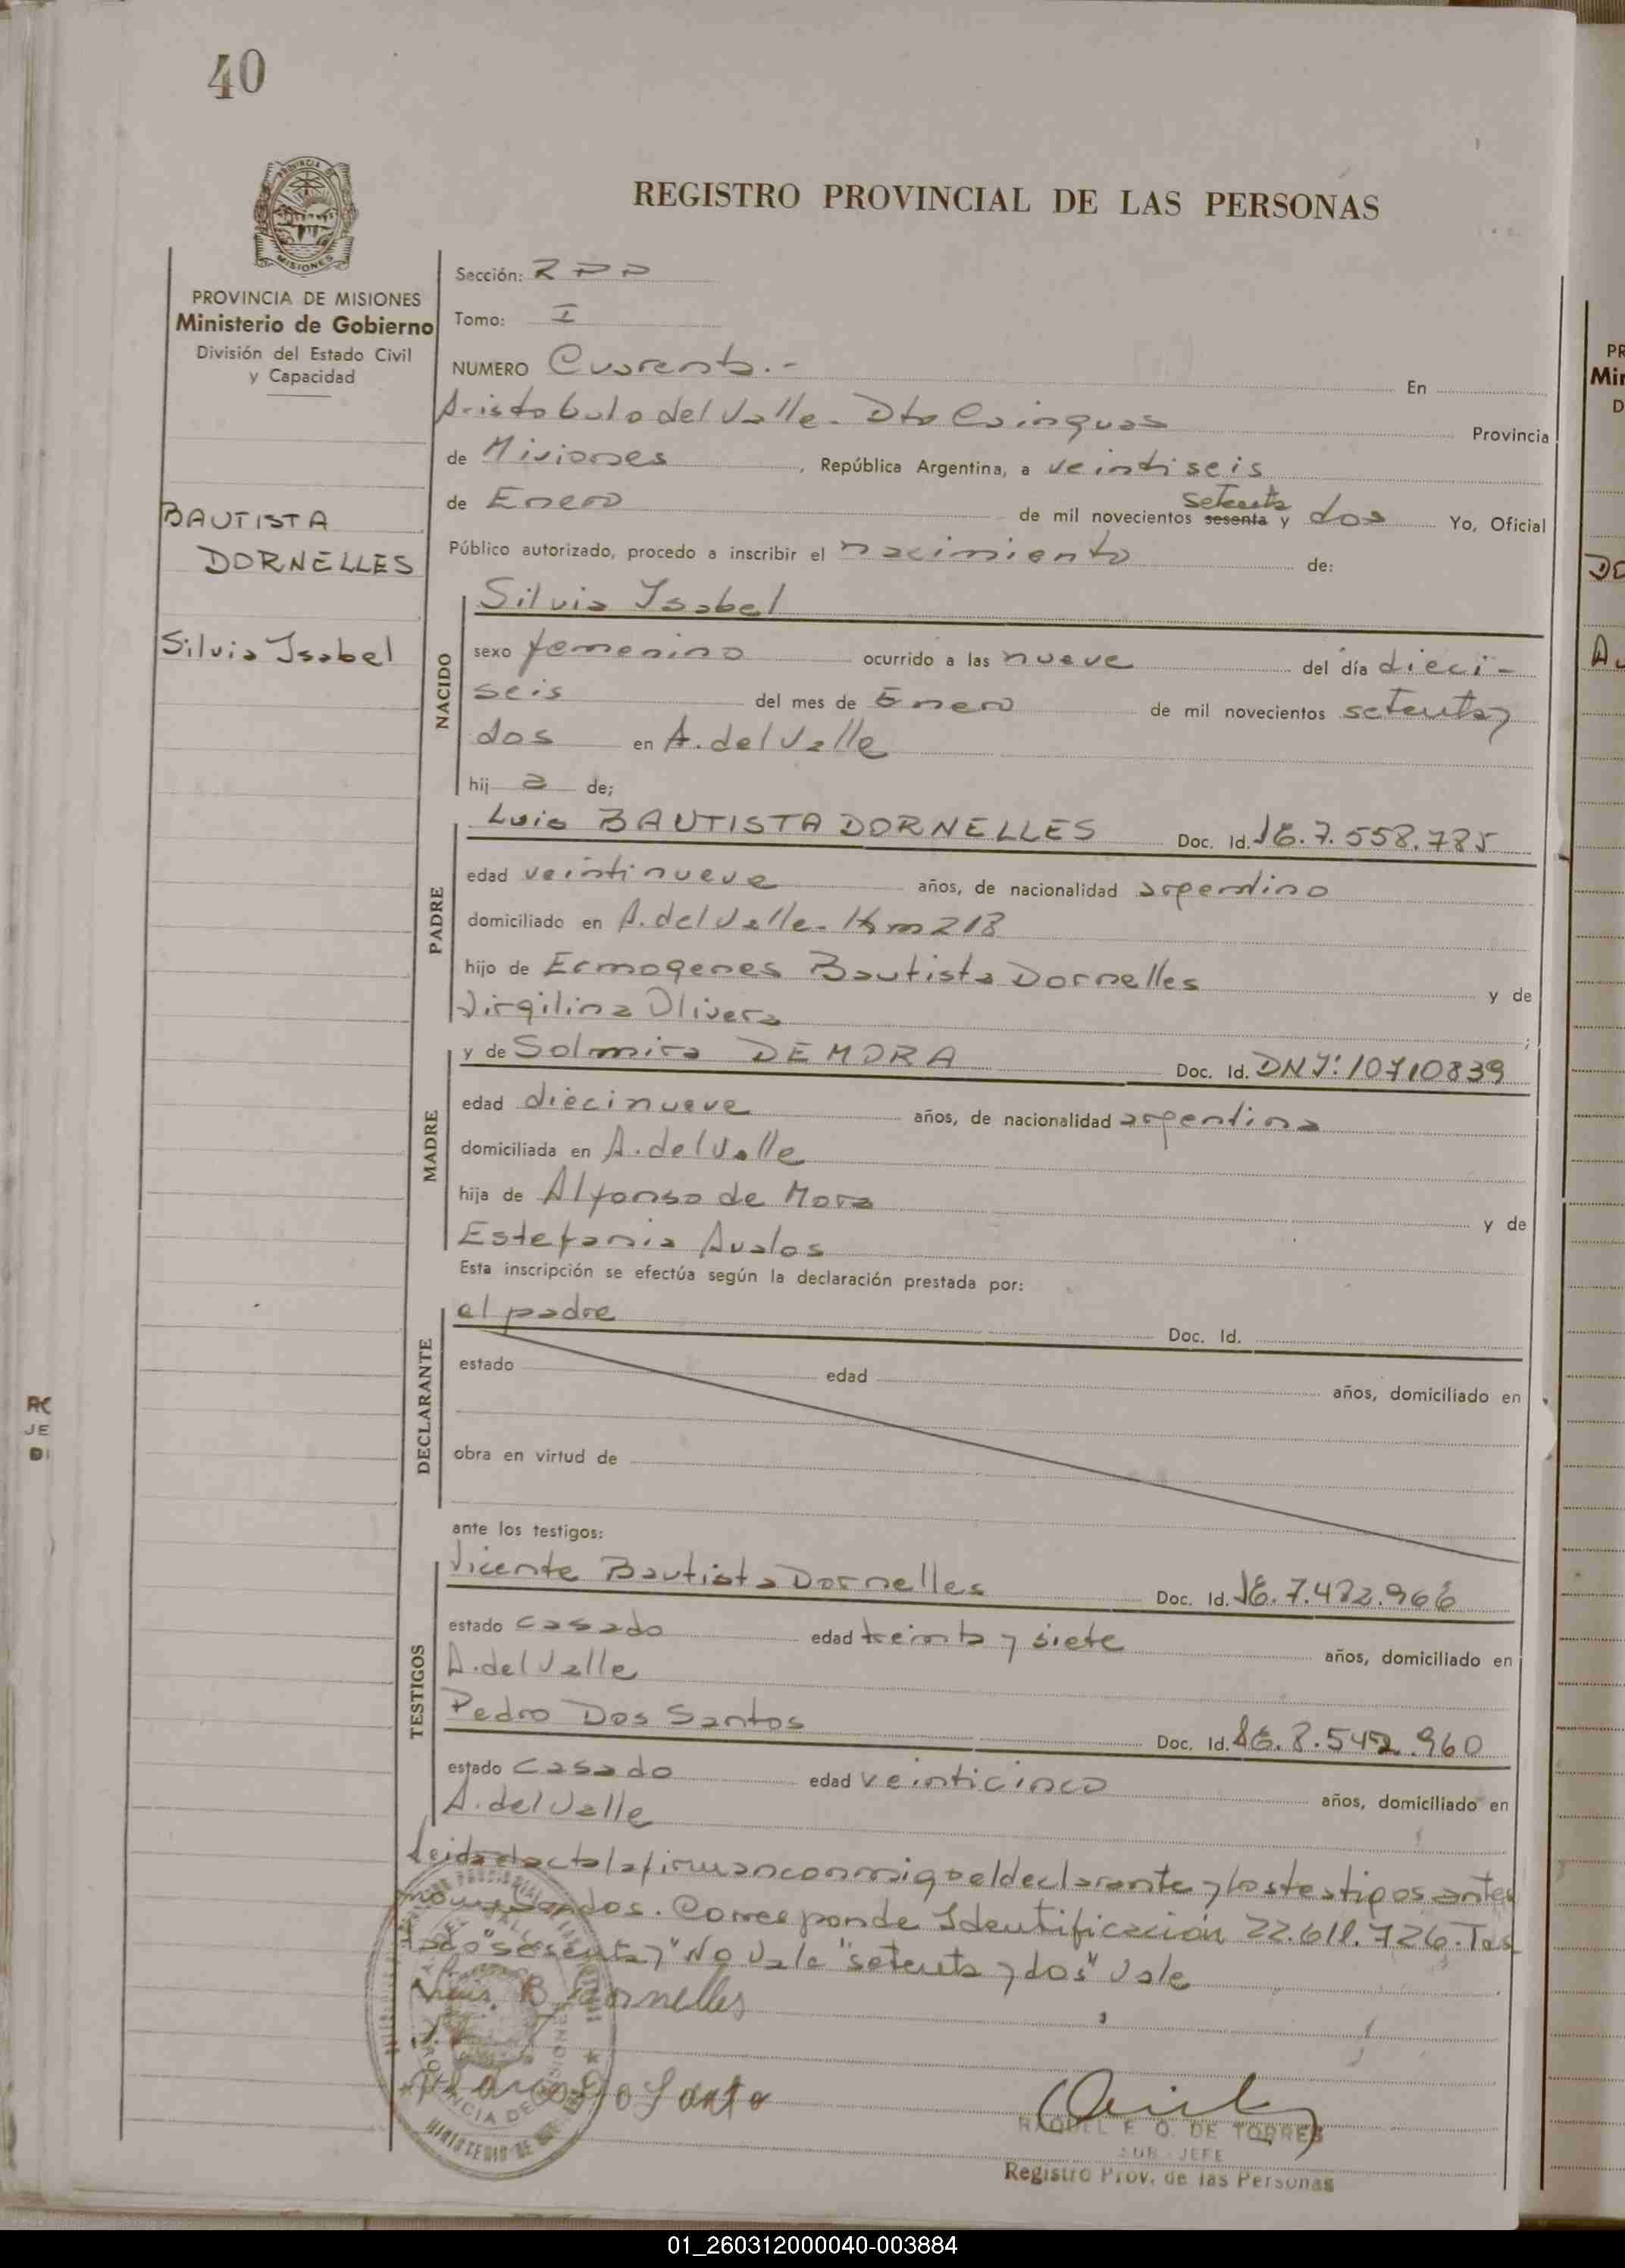 40
REGISTRO PROVINCIAL DE LAS PERSONAS
PROVINCIA DE MISIONES
Ministerio de Gobierno
División del Estado Civil
y Capacidad
BAUTISTA
DORNELLES
Silvia Isabel
Sección: RPP
Tomo: I
NUMERO Cuarenta.- En
Aristobulo del Valle. Dto Cainguas Provincia
de Misiones, República Argentina, a veintiseis
de Enero de mil novecientos sesenta setenta y dos Yo, Oficial
Público autorizado, procedo a inscribir el nacimiento de:
NACIDO
Silvia Isabel
sexo femenino ocurrido a las nueve del día dieci-
seis del mes de Enero de mil novecientos setenta y
dos en A. del Valle
hij a de;
PADRE
Luis BAUTISTA DORNELLES Doc. Id. 7.558.785
edad veintinueve años, de nacionalidad argentino
domiciliado en A. del Valle. Km 218
hijo de Ermogenes Bautista Dornelles y de
Virgilina Olivera ;
MADRE
y de Solmira DE MORA Doc. Id. DNI: 10710839
edad diecinueve años, de nacionalidad argentina
domiciliada en A. del Valle
hija de Alfonso de Mora y de
Estefania Avalos
Esta inscripción se efectúa según la declaración prestada por:
DECLARANTE
el padre Doc. Id.
estado edad años, domiciliado en
obra en virtud de
ante los testigos:
TESTIGOS
Vicente Bautista Dornelles Doc. Id. 7.482.966
estado casado edad treinta y siete años, domiciliado en
A. del Valle
Pedro Dos Santos Doc. Id. 8.542.960
estado casado edad veinticinco años, domiciliado en
A. del Valle
Leida el acta la firman conmigo el declarante y los testigos antes
mencionados. Corresponde Identificación 22.611.726. Tes
tado "sesenta y" No Vale "setenta y dos" Vale
Luis B Dornelles
RAQUEL E. O. DE TORRES
SUB-JEFE
Registro Prov. de las Personas
01_260312000040-003884